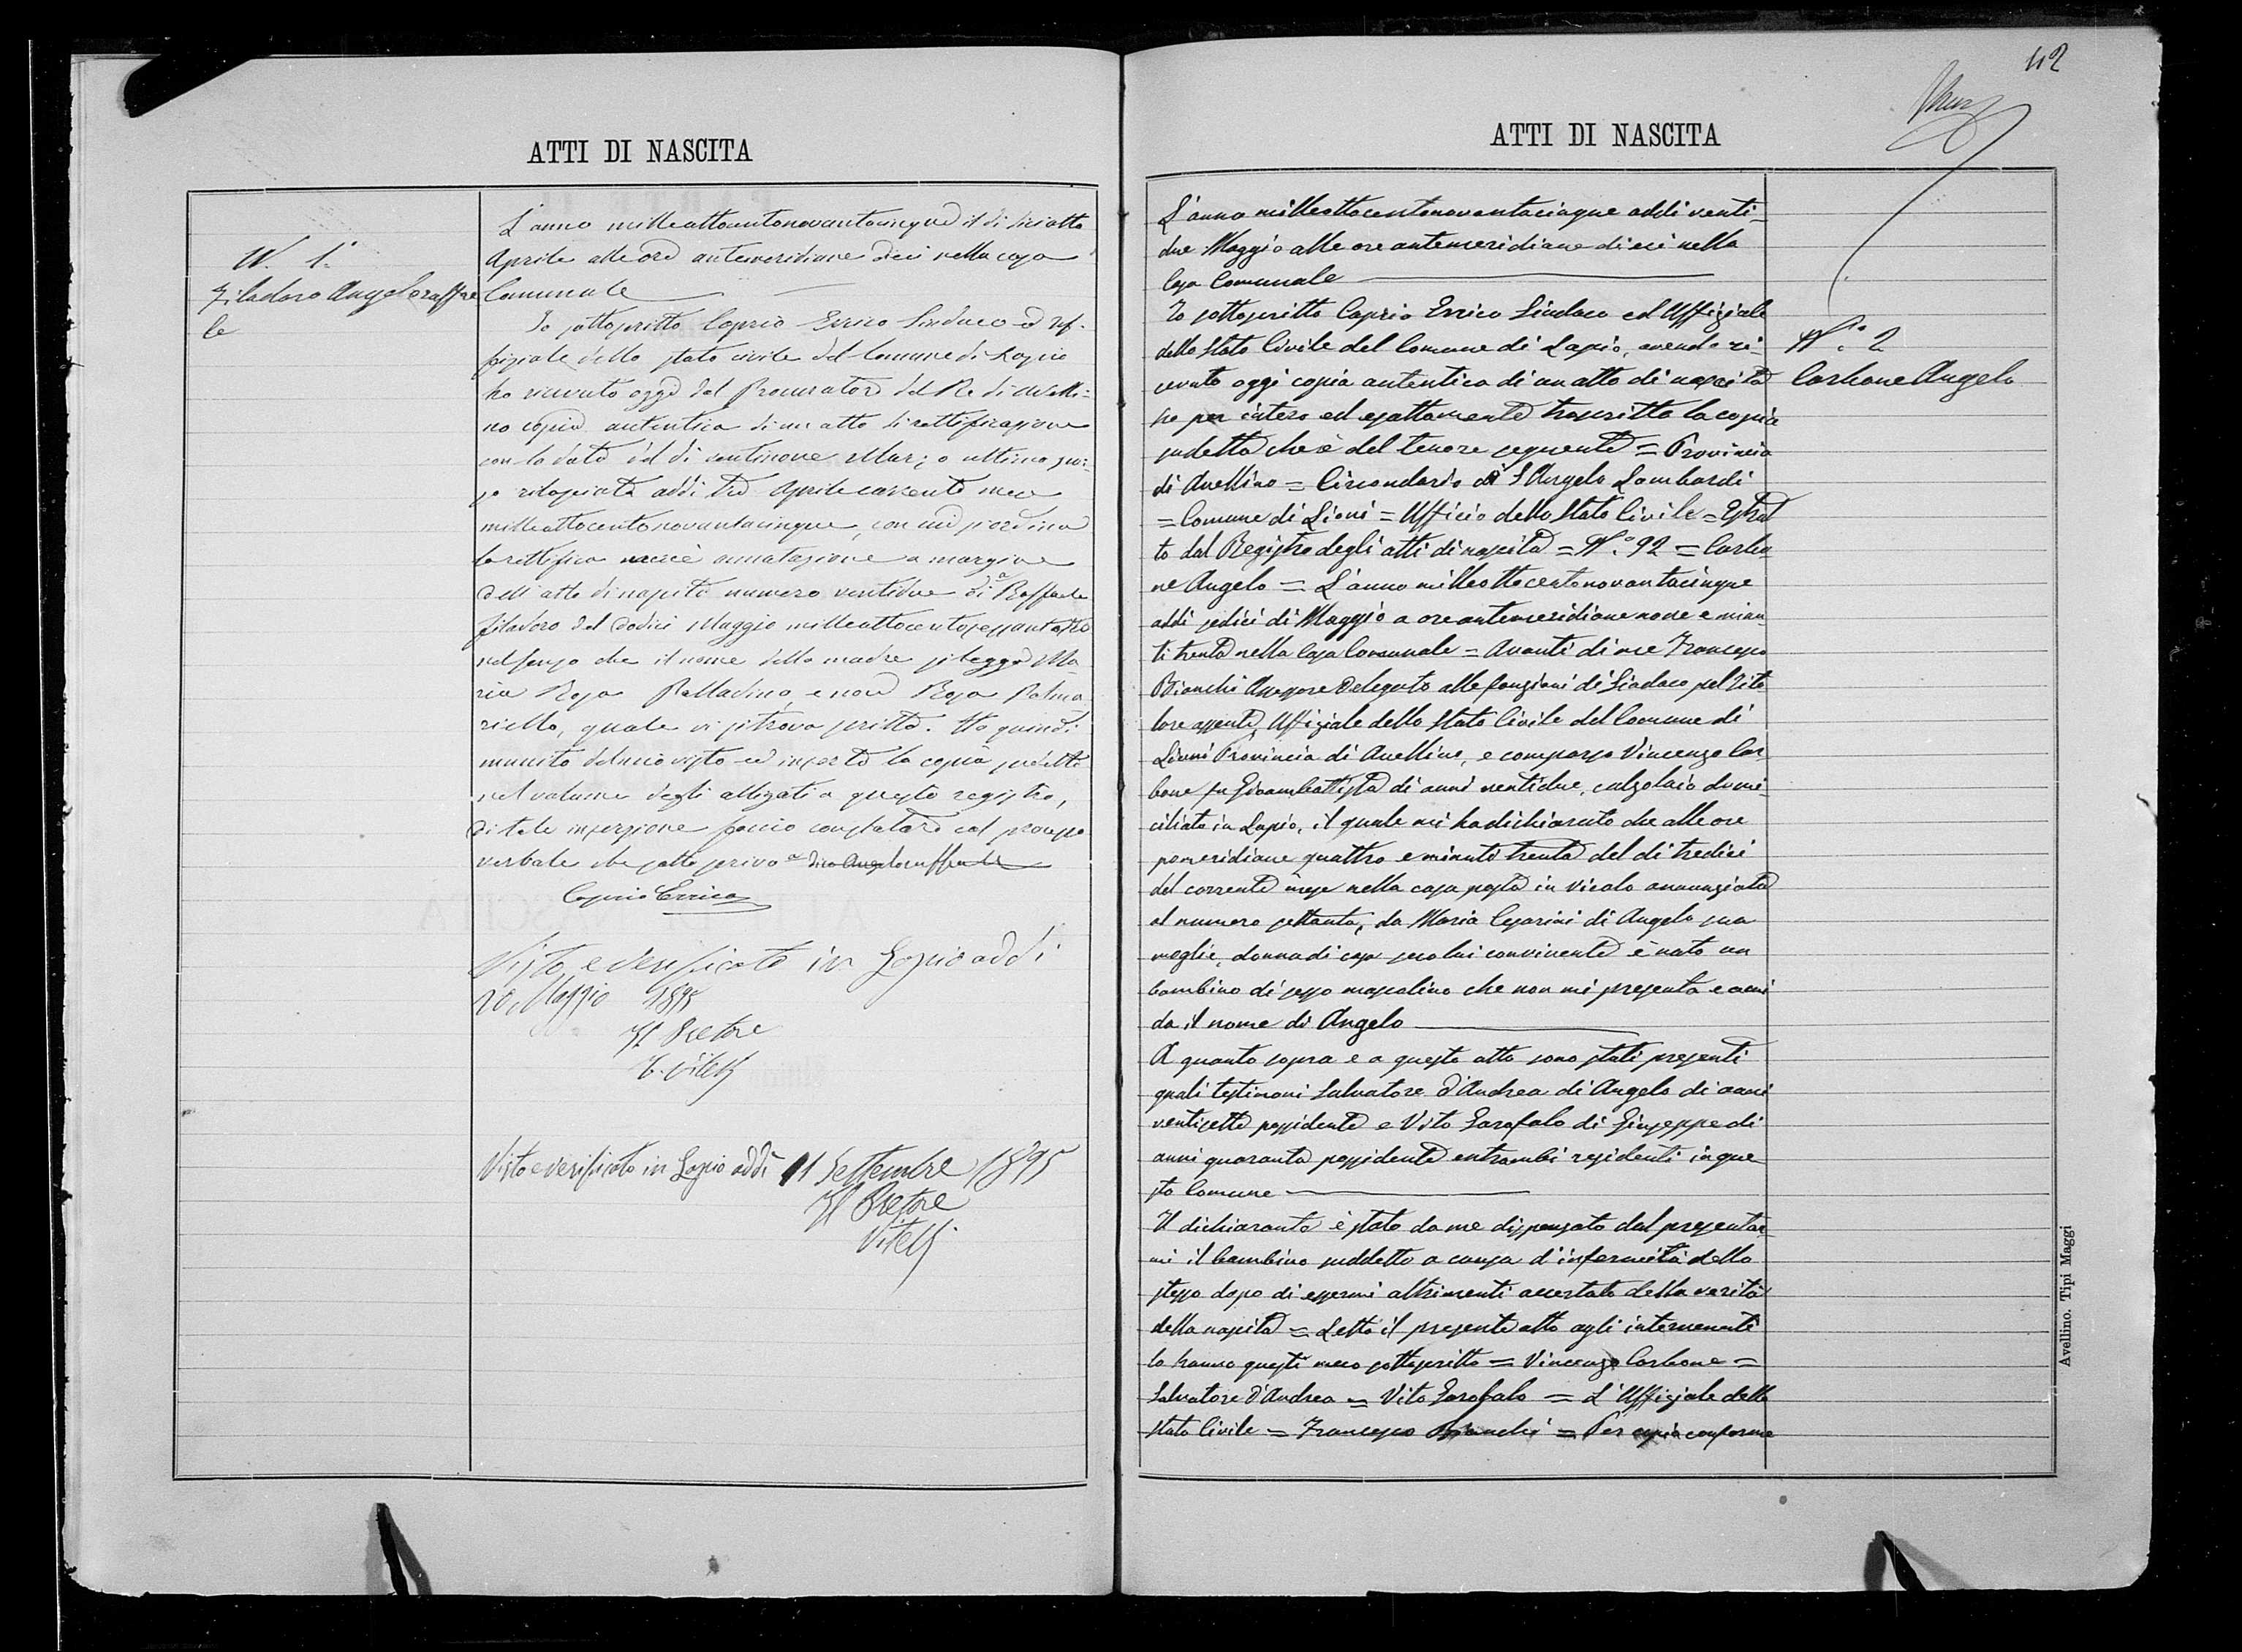 ATTI DI NASCITA
N. 1.
Filadoro Angeloraffae
le
L'anno milleottocentonovantacinque il dì diciotto
Aprile alle ore antimeridiane dieci nella casa
Comunale
Io sottoscritto Caprio Errico Sindaco ed Uf-
fiziale dello stato civile del Comune di Lapio
ho ricevuto oggi dal Procuratore del Re di Avelli-
no copia autentica di un atto di rettificazione
con la data del dì ventinove Marzo ultimo
rilasciata addì tre Aprile corrente mese
milleottocentonovantacinque, con cui si ordina
la rettifica annotazione a margine
dell'atto di nascita numero ventidue di Raffaele
Filadoro del dodici Maggio
nel senso che il nome della madre si legga Ma
ria Rosa Palladino, e non Rosa Palma
riello, quale vi si trova scritto. Ho quindi
munito del mio visto ed inserto la copia suddetta
nel volume degli allegati a questo registro,
di tale inserzione faccio constatare col processo
verbale che sottoscrivo dico Angeloraffaele
Caprio Errico
Visto e verificato in Lapio addì
20 Maggio 1895
Il Pretore
Vitelli
Visto e verificato in Lapio addì 11 Settembre 1895
Il Pretore
Vitelli
42
ATTI DI NASCITA
L'anno milleottocentonovantacinque addì venti-
due Maggio alle ore antemeridiane dieci nella
Casa Comunale
Io sottoscritto Caprio Errico Sindaco ed Uffiziale
dello Stato Civile del Comune di Lapio, avendo ri-
cevuto oggi copia autentica di un atto di nascita
ho per intero ed esattamente trascritto la copia
sudetta che è del tenore seguente = Provincia
di Avellino = Circondario di S Angelo Lombardi
= Comune di Lioni = Ufficio dello Stato Civile = Estrat
to dal Registro degli atti di nascita = N.° 92 = Carbo-
ne Angelo = L'anno milleottocentonovantacinque
addì sedici di Maggio a ore antemeridiane nove e minu-
ti trenta nella Casa Comunale = Avanti di me Francesco
Bianchi Assessore Delegato alle funzioni di Sindaco pel Tito
lare assente, Uffiziale dello Stato Civile del Comune di
Lioni Provincia di Avellino, è comparso Vincenzo Car
bone fu Giovambattista di anni ventidue, calzolaio domi-
ciliato in Lapio, il quale mi ha dichiarato che alle ore
pomeridiane quattro e minuti trenta del dì tredici
del corrente mese nella casa posta in vicolo annunziata
al numero settanta, da Maria Cesarini di Angelo sua
moglie, donna di casa seco lui convivente è nato un
bambino di sesso mascolino che non mi presenta e a cui
da il nome di Angelo
A quanto sopra e a questo atto sono stati presenti
quali testimoni Salvatore d'Andrea di Angelo di anni
ventisette possidente e Vito Garofalo di Giuseppe di
anni quaranta possidente entrambi residenti in que
sto Comune
Il dichiarante è stato da me dispensato dal presentar
mi il bambino suddetto a causa d'infermità dello
stesso dopo di essermi altrimenti accertato della verità
della nascita = Letto il presente atto agli intervenuti
lo hanno questi meco sottoscritto = Vincenzo Carbone =
Salvatore d'Andrea = Vito Garofalo = L'Uffiziale dello
Stato Civile = Francesco Bianchi = Per copia conforme
N.° 2
Carbone Angelo
Avellino. Tipi Maggi